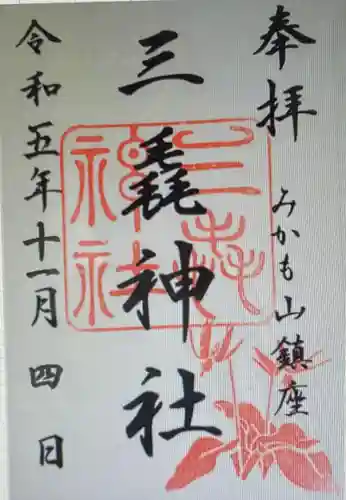 奉拝
みかも山鎮座
三毳神社
令和五年十一月四日